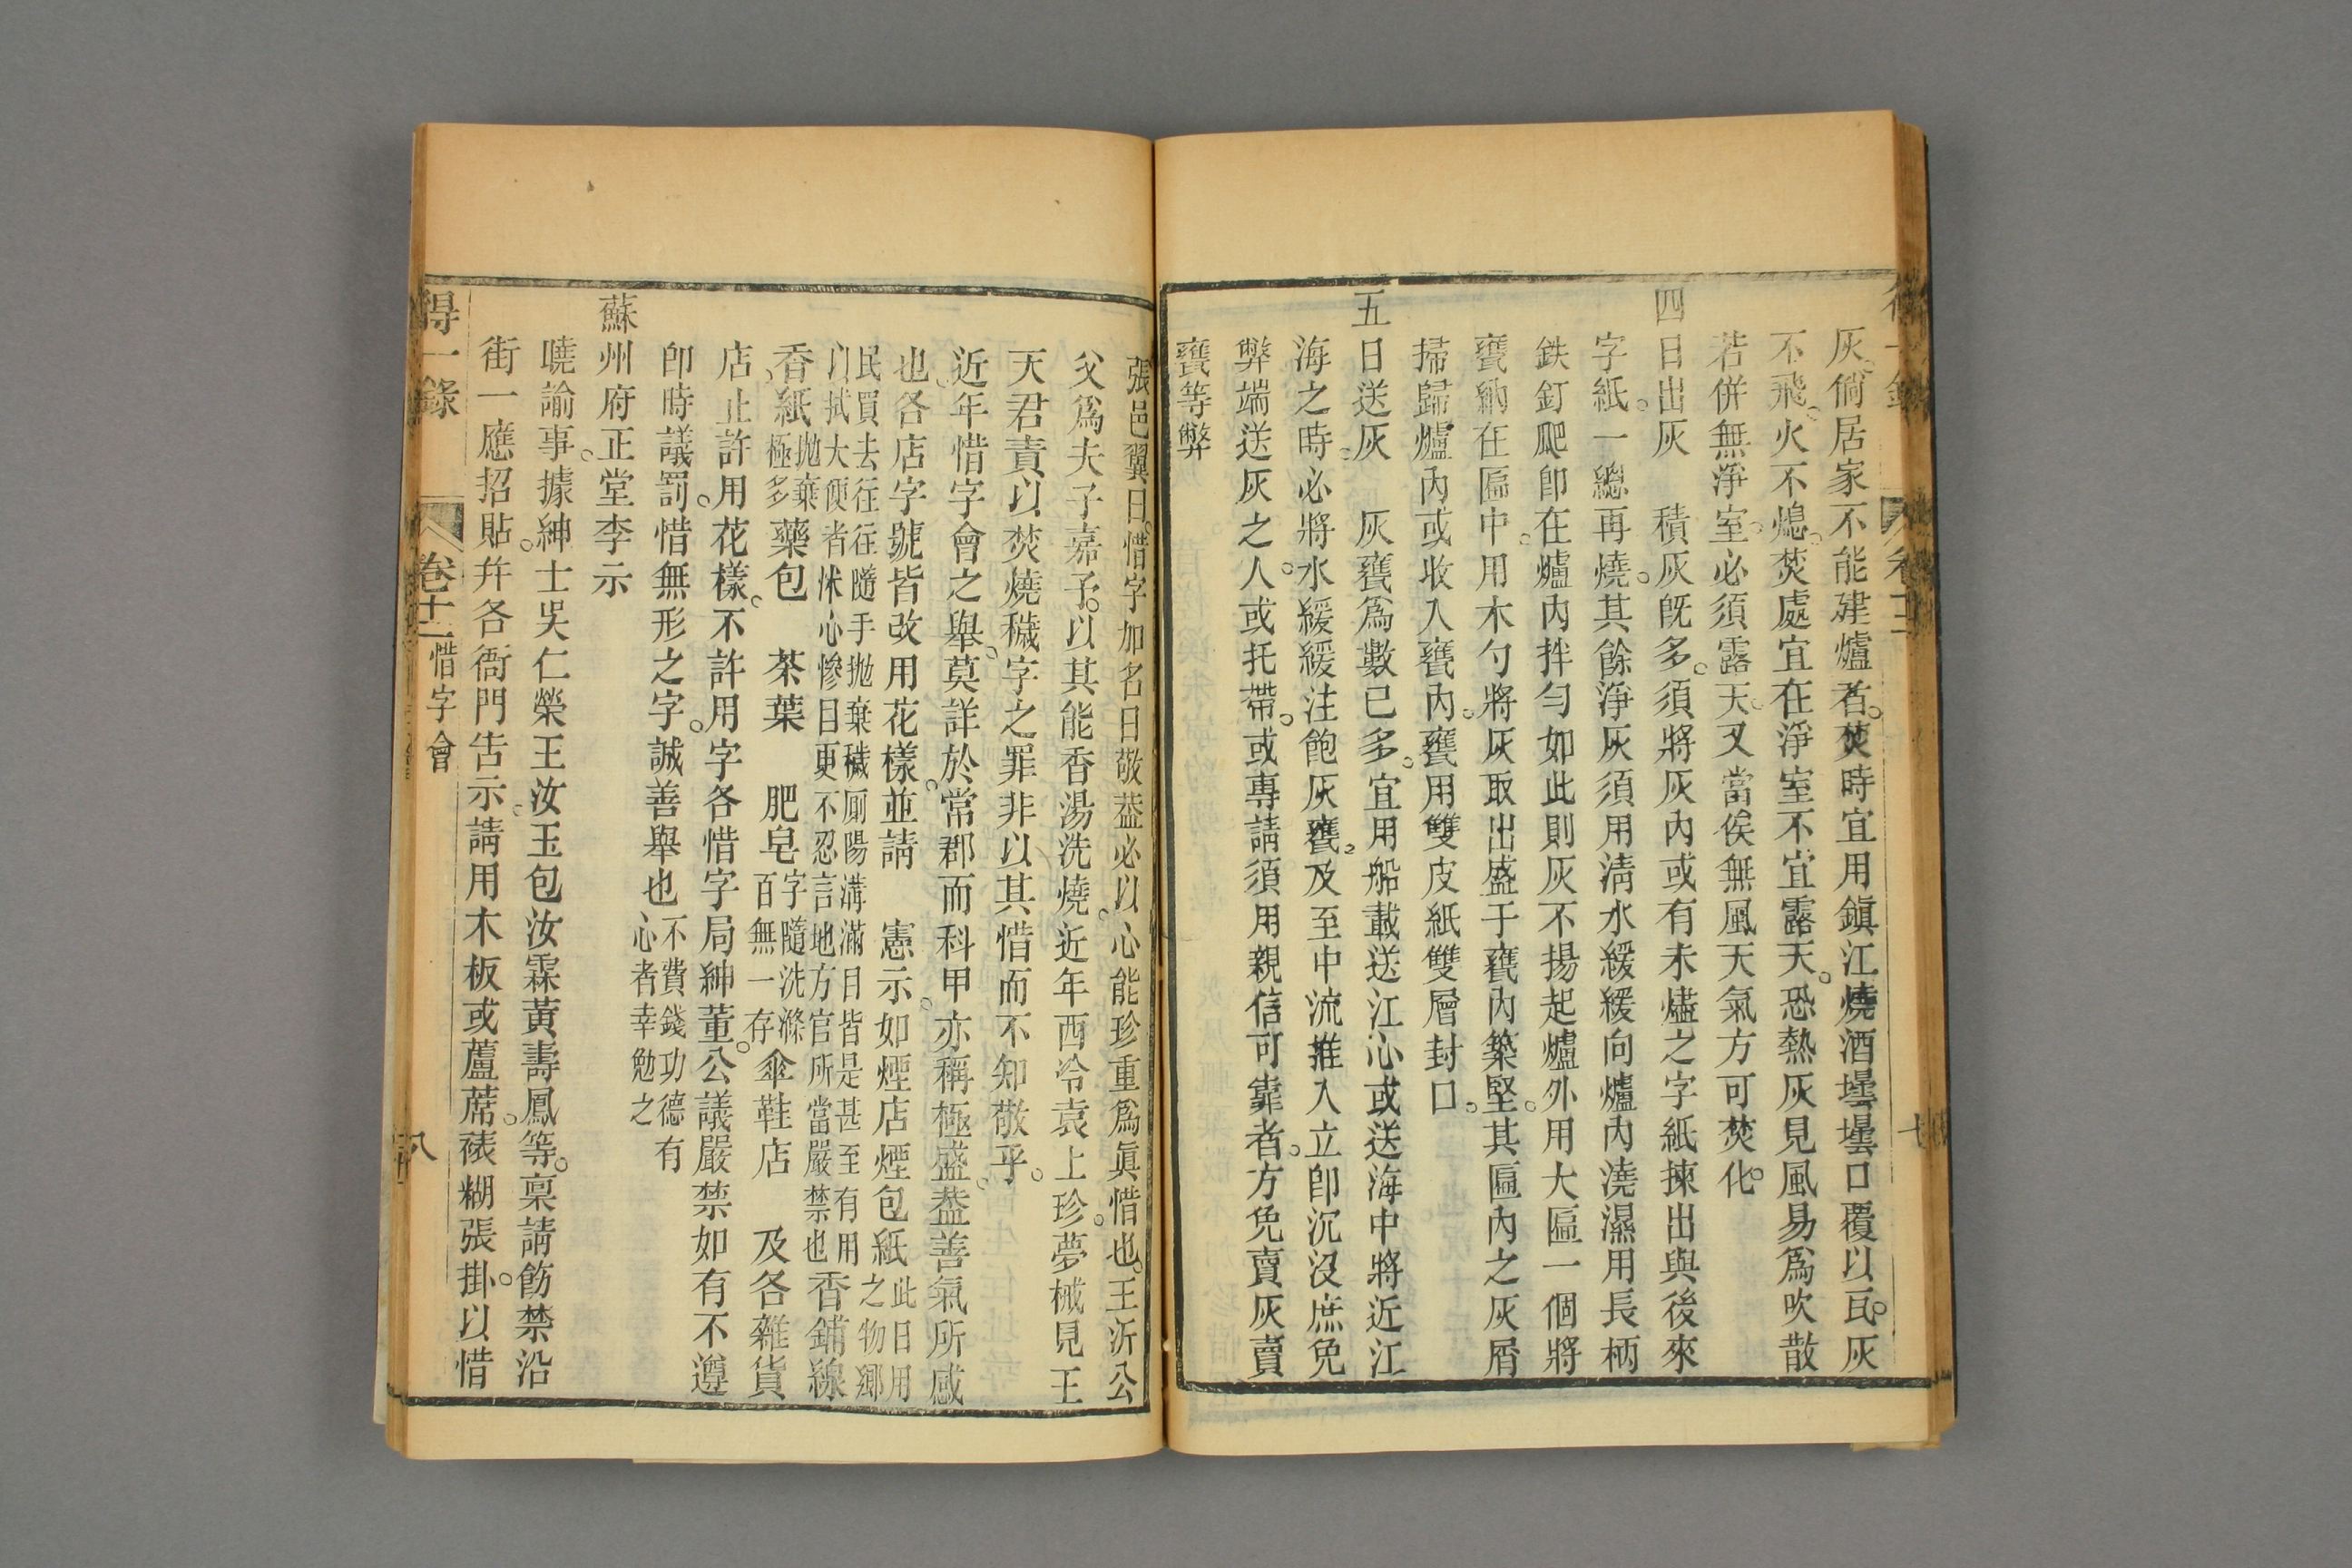 灰。倘居家不能建爐者。焚時宜用鎮江燒酒壜壜口覆以瓦。灰
不飛。火不熄。焚處宜在淨室不宜露天。恐熱灰見風易爲吹散
若併無淨室。必須露天。又當俟無風天氣方可焚化。
四曰出灰　積灰旣多。須將灰內或有未燼之字紙揀出與後來
字紙。一總再燒。其餘淨灰須用清水緩緩向爐內澆濕用長柄
鉄釘爬卽在爐內拌勻如此則灰不揚起爐外用大匾一個將
甕納在匾中。用木勺將灰取出盛于甕內築堅。其匾內之灰屑
掃歸爐內或收入甕內。甕用雙皮紙雙層封口。
五曰送灰　灰甕爲數已多。宜用船載送江心或送海中將近江
海之時。必將水緩緩注飽灰甕。及至中流推入立卽沉沒庶免
弊端送灰之人。或托帶。或專請須用親信可靠者。方免賣灰賣
甕等弊
張邑翼曰。惜字加名曰敬葢必以心能珍重爲眞惜也。王沂公
父爲夫子嘉予。以其能香湯洗燒。近年西冷袁上珍。夢械見王
天君責以焚燒穢字之罪非以其惜而不知敬乎。
近年惜字會之舉。莫詳於常郡而科甲亦稱極盛。葢善氣所感
也。各店字號皆改用花樣。並請　憲示。如煙店煙包紙此日用之物鄉
民買去往往隨手拋棄穢厠陽溝滿目皆是甚至有用
门拭大便者怵心慘目更不忍言地方官所當嚴禁也香鋪線
香。紙拋棄極多藥包　茶葉　肥皂字隨洗滌百無一存傘鞋店　及各雜貨
店止許用花樣。不許用字各惜字局紳董。公議嚴禁如有不遵
卽時議罰。惜無形之字。誠善舉也不費錢功德有心者幸勉之
蘇州府正堂李示
曉諭事。據紳士吳仁榮王汝玉包汝霖黃壽鳳等。稟請飭禁沿
街一應招貼。幷各衙門告示。請用木板或蘆蓆。裱糊張掛。以惜
得一錄　卷十二　惜字會　八